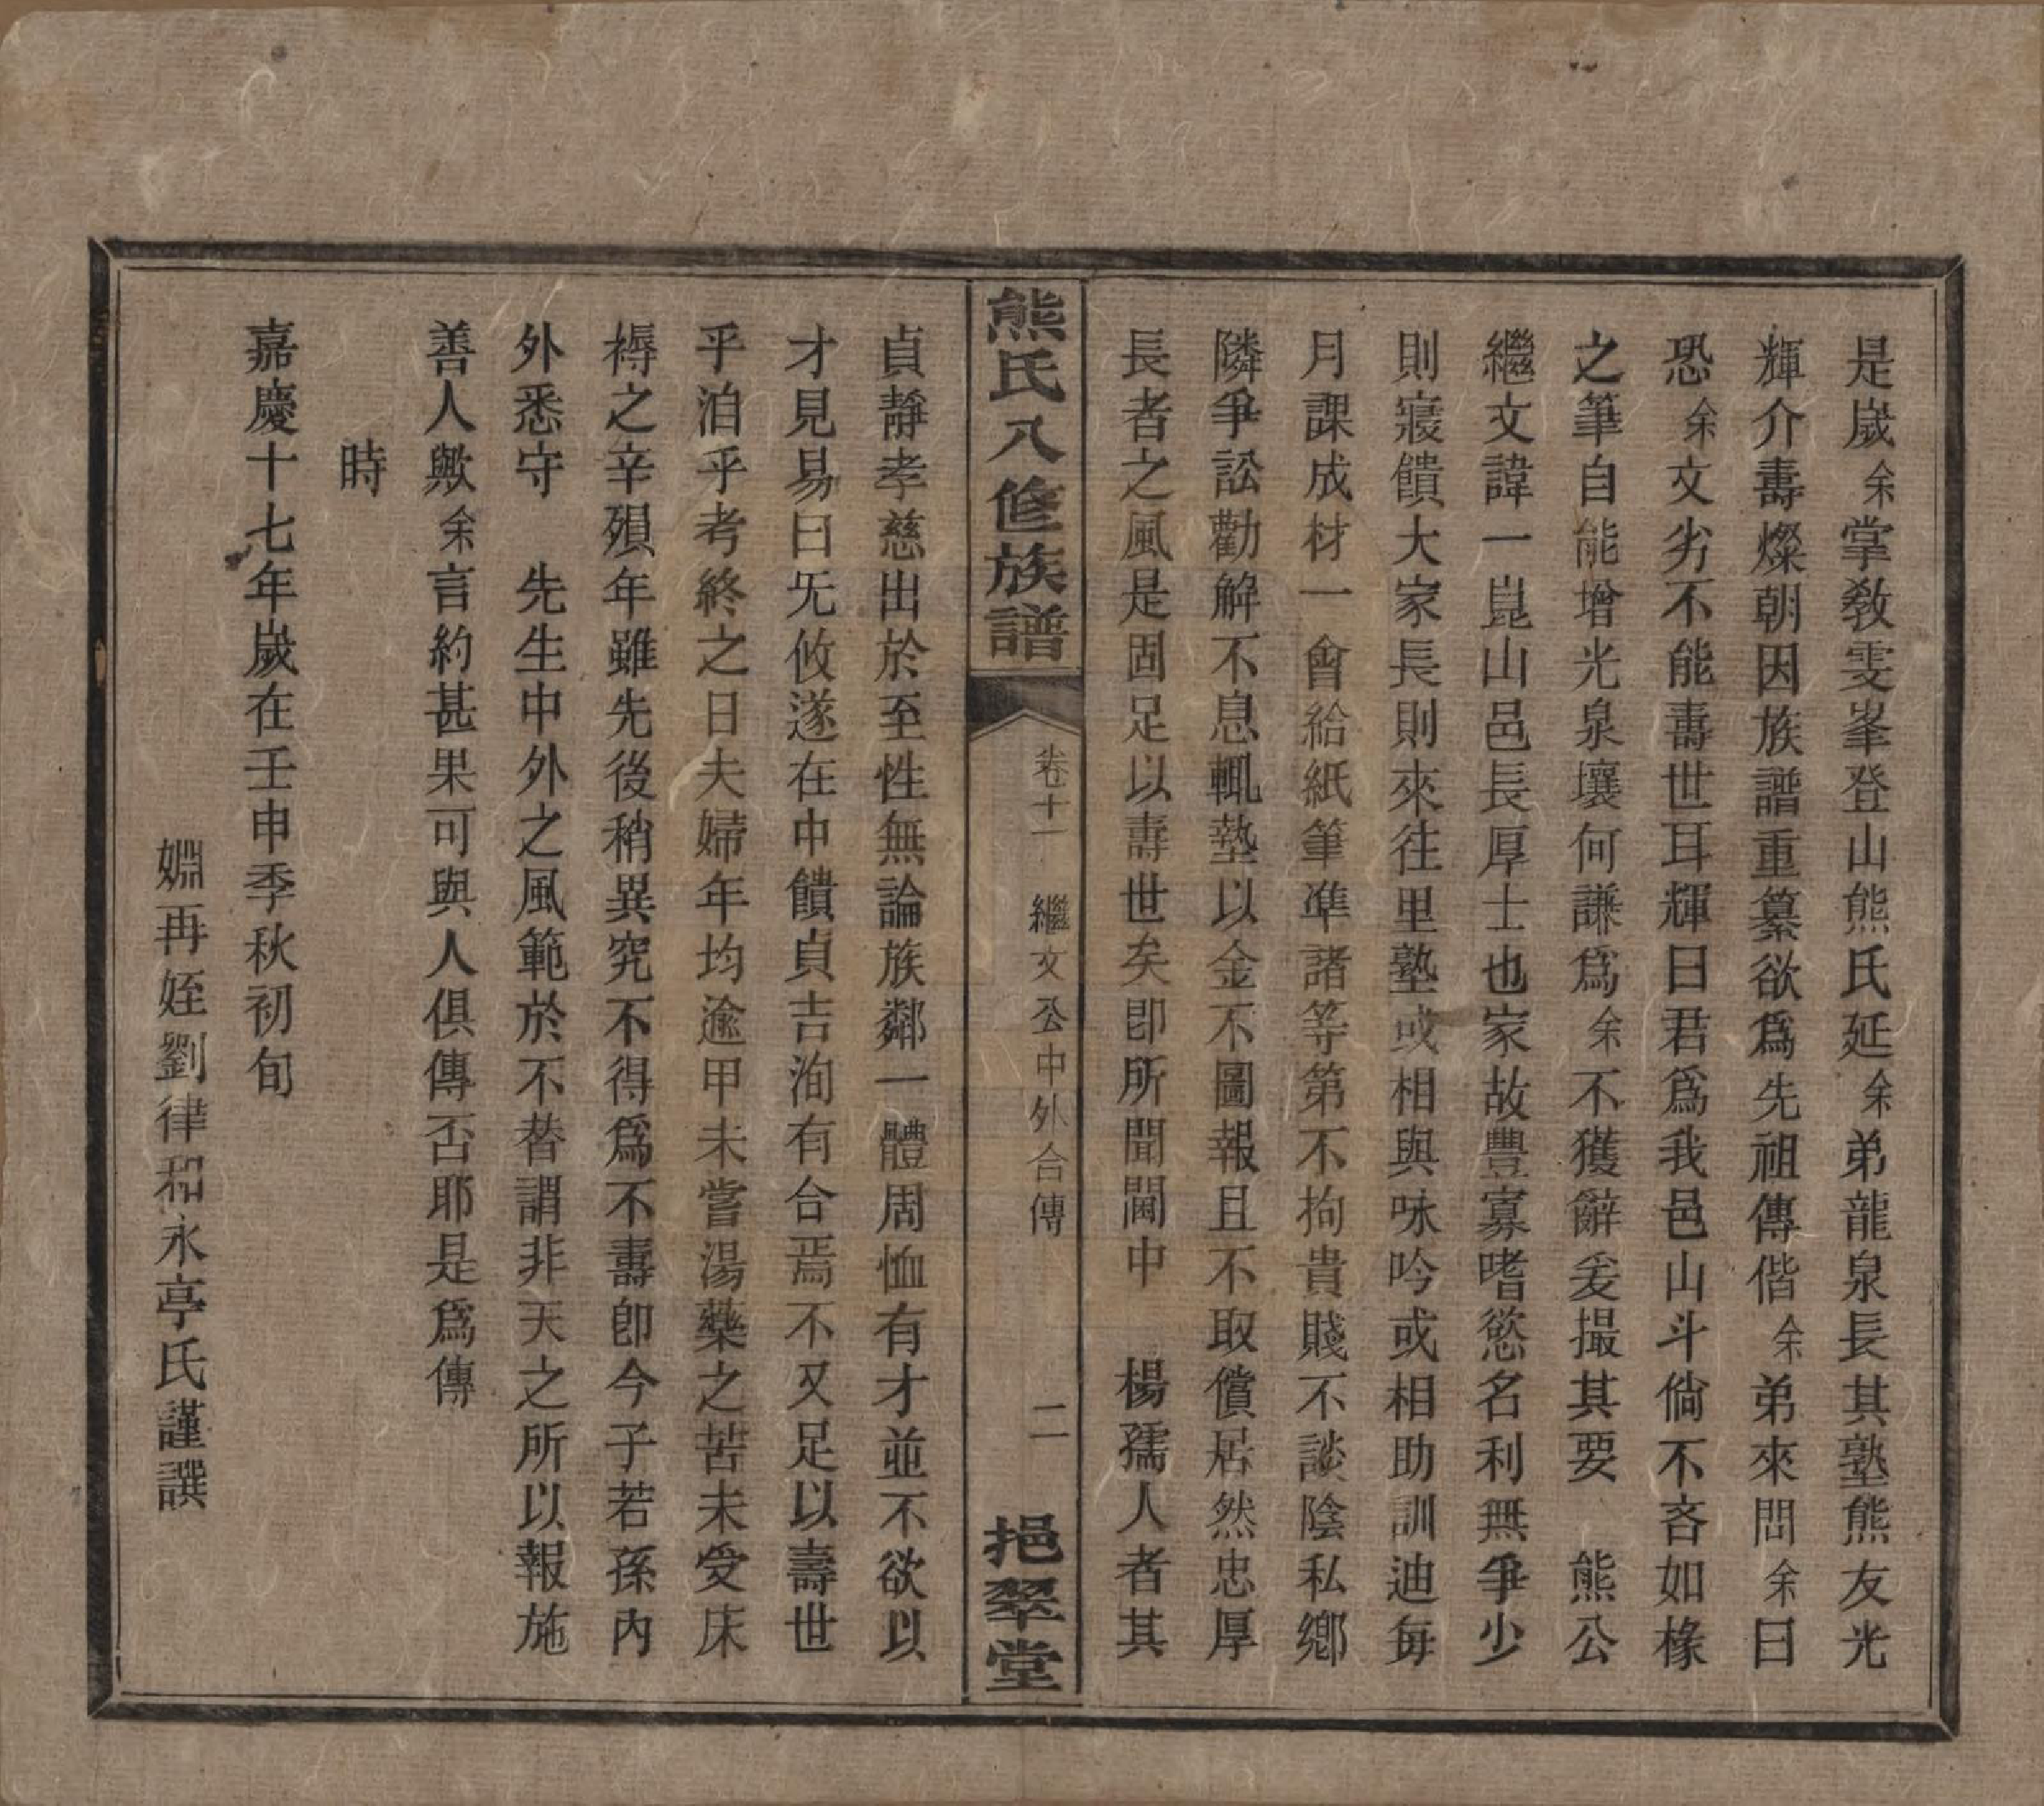 是歲余掌敎雯峯登山熊氏延余弟龍泉長其塾熊友光
輝介壽燦朝因族譜重纂欲爲先祖傳偕余弟來問余曰
恐余文劣不能壽世耳輝曰君爲我邑山斗倘不吝如椽
之筆自能增光泉壤何謙爲余不獲辭爰撮其要　熊公
繼文諱一崑山邑長厚士也家故豐寡嗜慾名利無爭少
則寢饋大家長則來往里塾或相與咏吟或相助訓迪每
月課成材一會給紙筆準諸等第不拘貴賤不談陰私鄉
隣爭訟勸解不息輒墊以金不圖報且不取償居然忠厚
長者之風是固足以壽世矣卽所聞閫中　楊孺人者其
熊氏八修族譜
卷十一　繼文公中外合傳　二
挹翠堂
貞靜孝慈出於至性無論族鄰一體周恤有才並不欲以
才見易曰无攸遂在中饋貞吉洵有合焉不又足以壽世
乎泊乎考終之日夫婦年均逾甲未嘗湯藥之苦未受床
褥之辛殞年雖先後稍異究不得爲不壽卽今子若孫內
外悉守　先生中外之風範於不替謂非天之所以報施
善人歟余言約甚果可與人俱傳否耶是爲傳
時
嘉慶十七年歲在壬申季秋初旬
姻再姪劉律和永亭氏謹譔